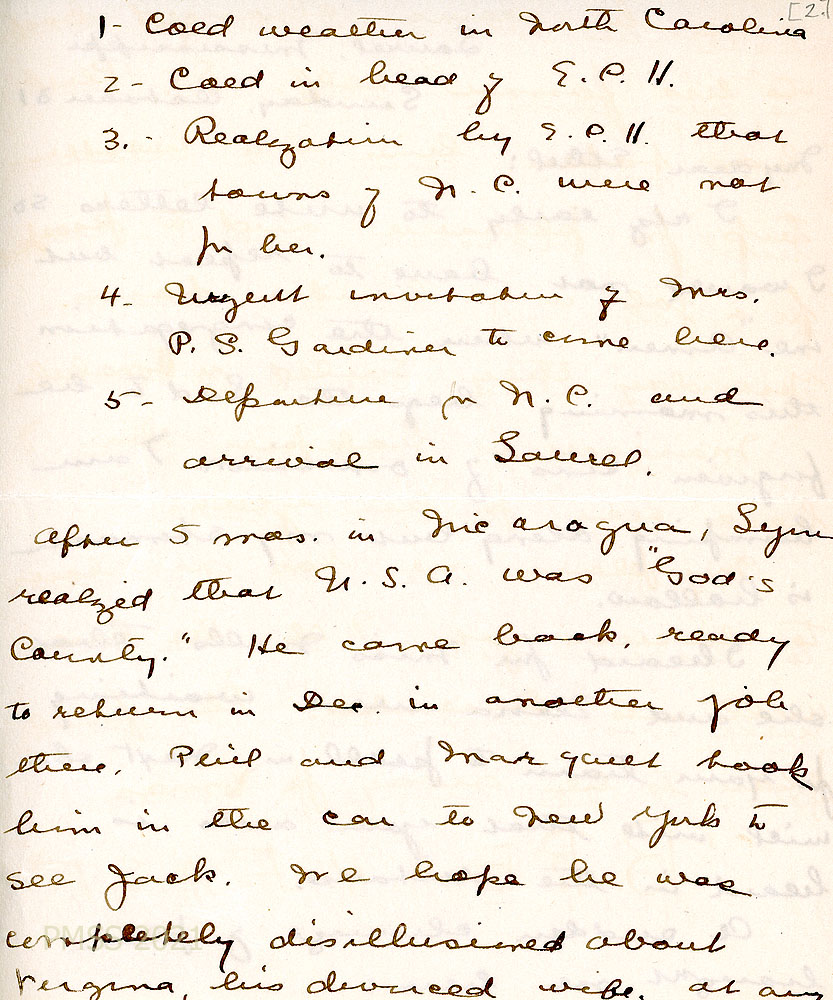 [2.]
1- Cold weather in North Carolina
2- Cold in head of E. P. H.
3.- Realization by E. P. H. that
towns of N. C. were not
for her.
4- Urgent invitation of Mrs.
P. S. Gardiner to come here.
5- Departure fr N. C. and
arrival in Laurel.
After 5 mos. in Nicaragua,
realized that U. S. A. was "God's
Country." He came back, ready
to return in Dec. in another job
there. Phil and Margaret took
him in the car to New York to
see Jack. We hope he was
completely disillusioned about
Virginia, his divorced wife. At any
PMSS 2021